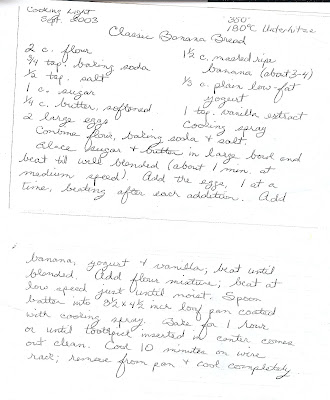 Cooking Light
Sept. 2003
350°
180°C Unterhitze
Classic Banana Bread
2 c. flour
3/4 tsp. baking soda
1/2 tsp. salt
1 c. sugar
1/4 c. butter, softened
2 large eggs
1 1/2 c. mashed ripe
banana (about 3-4)
1/3 c. plain low-fat
yogurt
1 tsp. vanilla extract
Cooking spray
Combine flour, baking soda & salt.
Place sugar & butter in large bowl and
beat til well blended (about 1 min. at
medium speed). Add the eggs, 1 at a
time, beating after each addition. Add
banana, yogurt & vanilla; beat until
blended. Add flour mixture; beat at
low speed just until moist. Spoon
batter into 8 1/2 x 4 1/2 inch loaf pan coated
with cooking spray. Bake for 1 hour
or until toothpick inserted in center comes
out clean. Cool 10 minutes on wire
rack; remove from pan & cool completely.